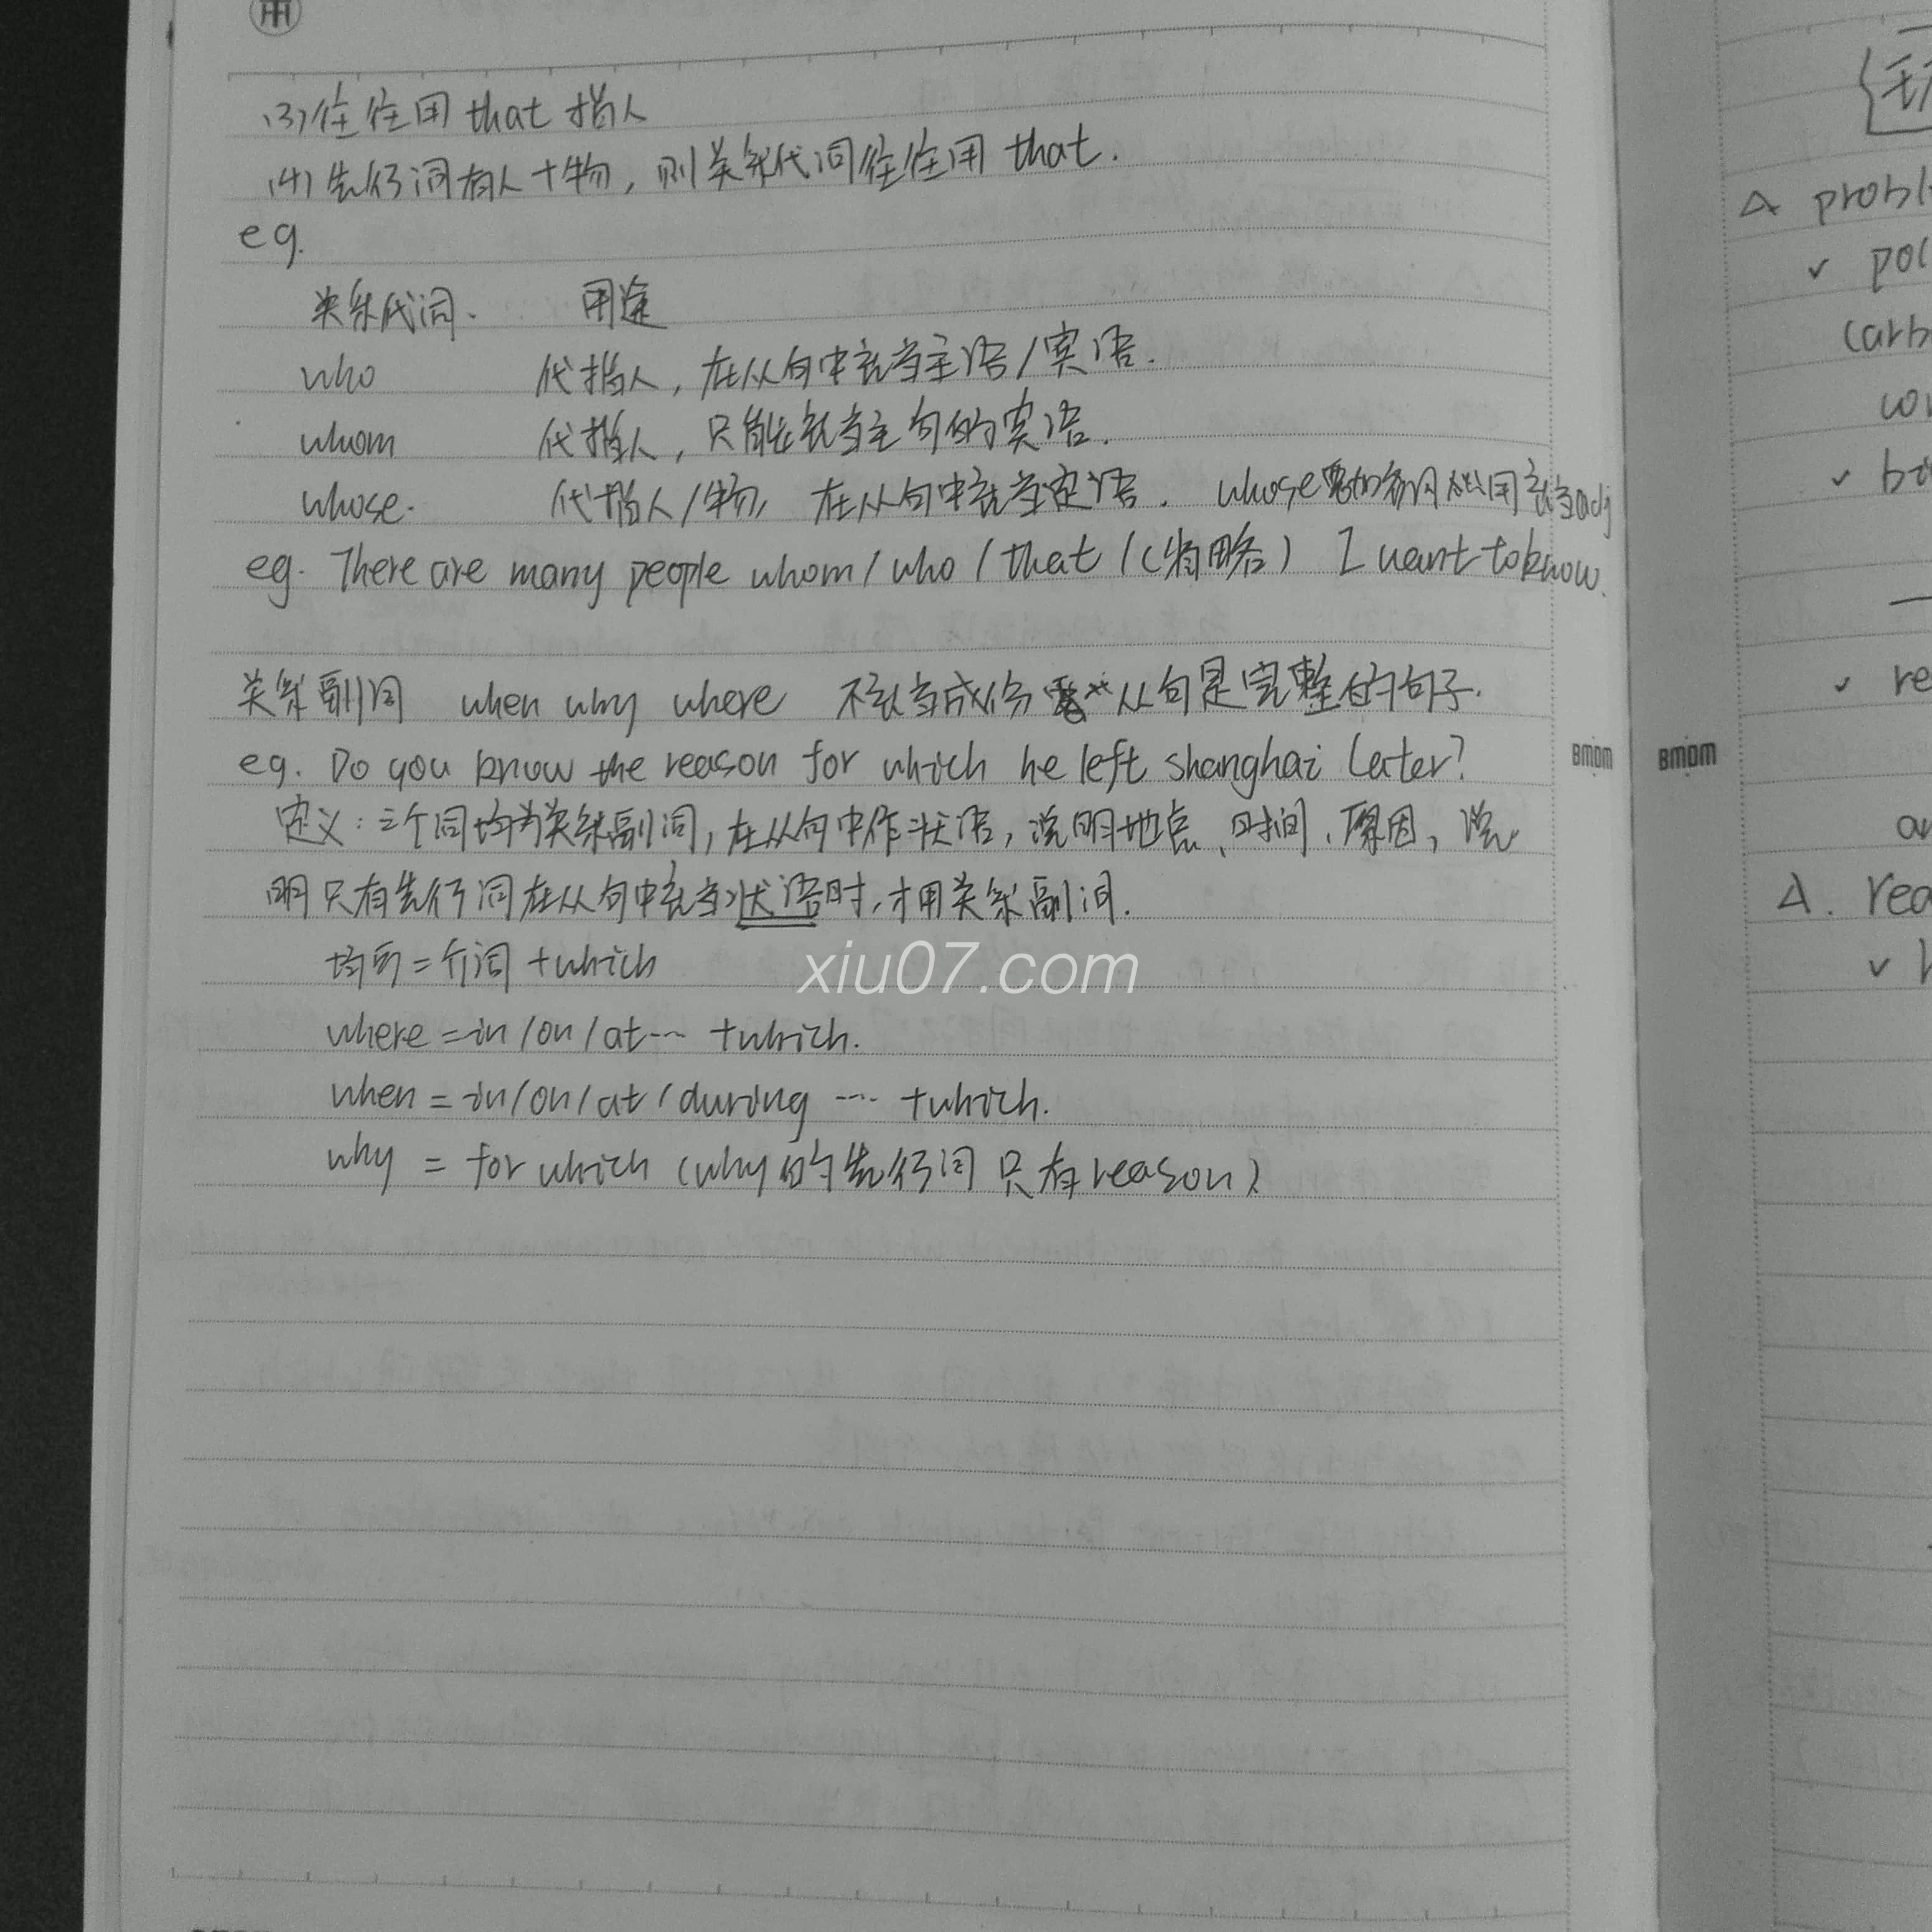 (3)往往用that指人
(4)先行词有人+物,则关系代词往往用that.
eg.
关系代词. 用途
who 代指人,在从句中充当主语/宾语.
whom 代指人,只能充当主句的宾语.
whose. 代指人/物,在从句中充当定语. whose要加名词 充当adj
eg. There are many people whom/who/that/(省略) I want to know.
关系副词 when why where 不充当成份 从句是完整的句子.
eg. Do you know the reason for which he left shanghai later?
定义:三个词均为关系副词,在从句中作状语,说明地点、时间、原因,说
明只有先行词在从句中充当状语时,才用关系副词.
均可=介词+which
where=in/on/at… +which.
when=in/on/at/during … +which.
why = for which (why的先行词只有reason)
xiu07.com
BMDM
BMDM
A
pol
carb
con
re
A. rea